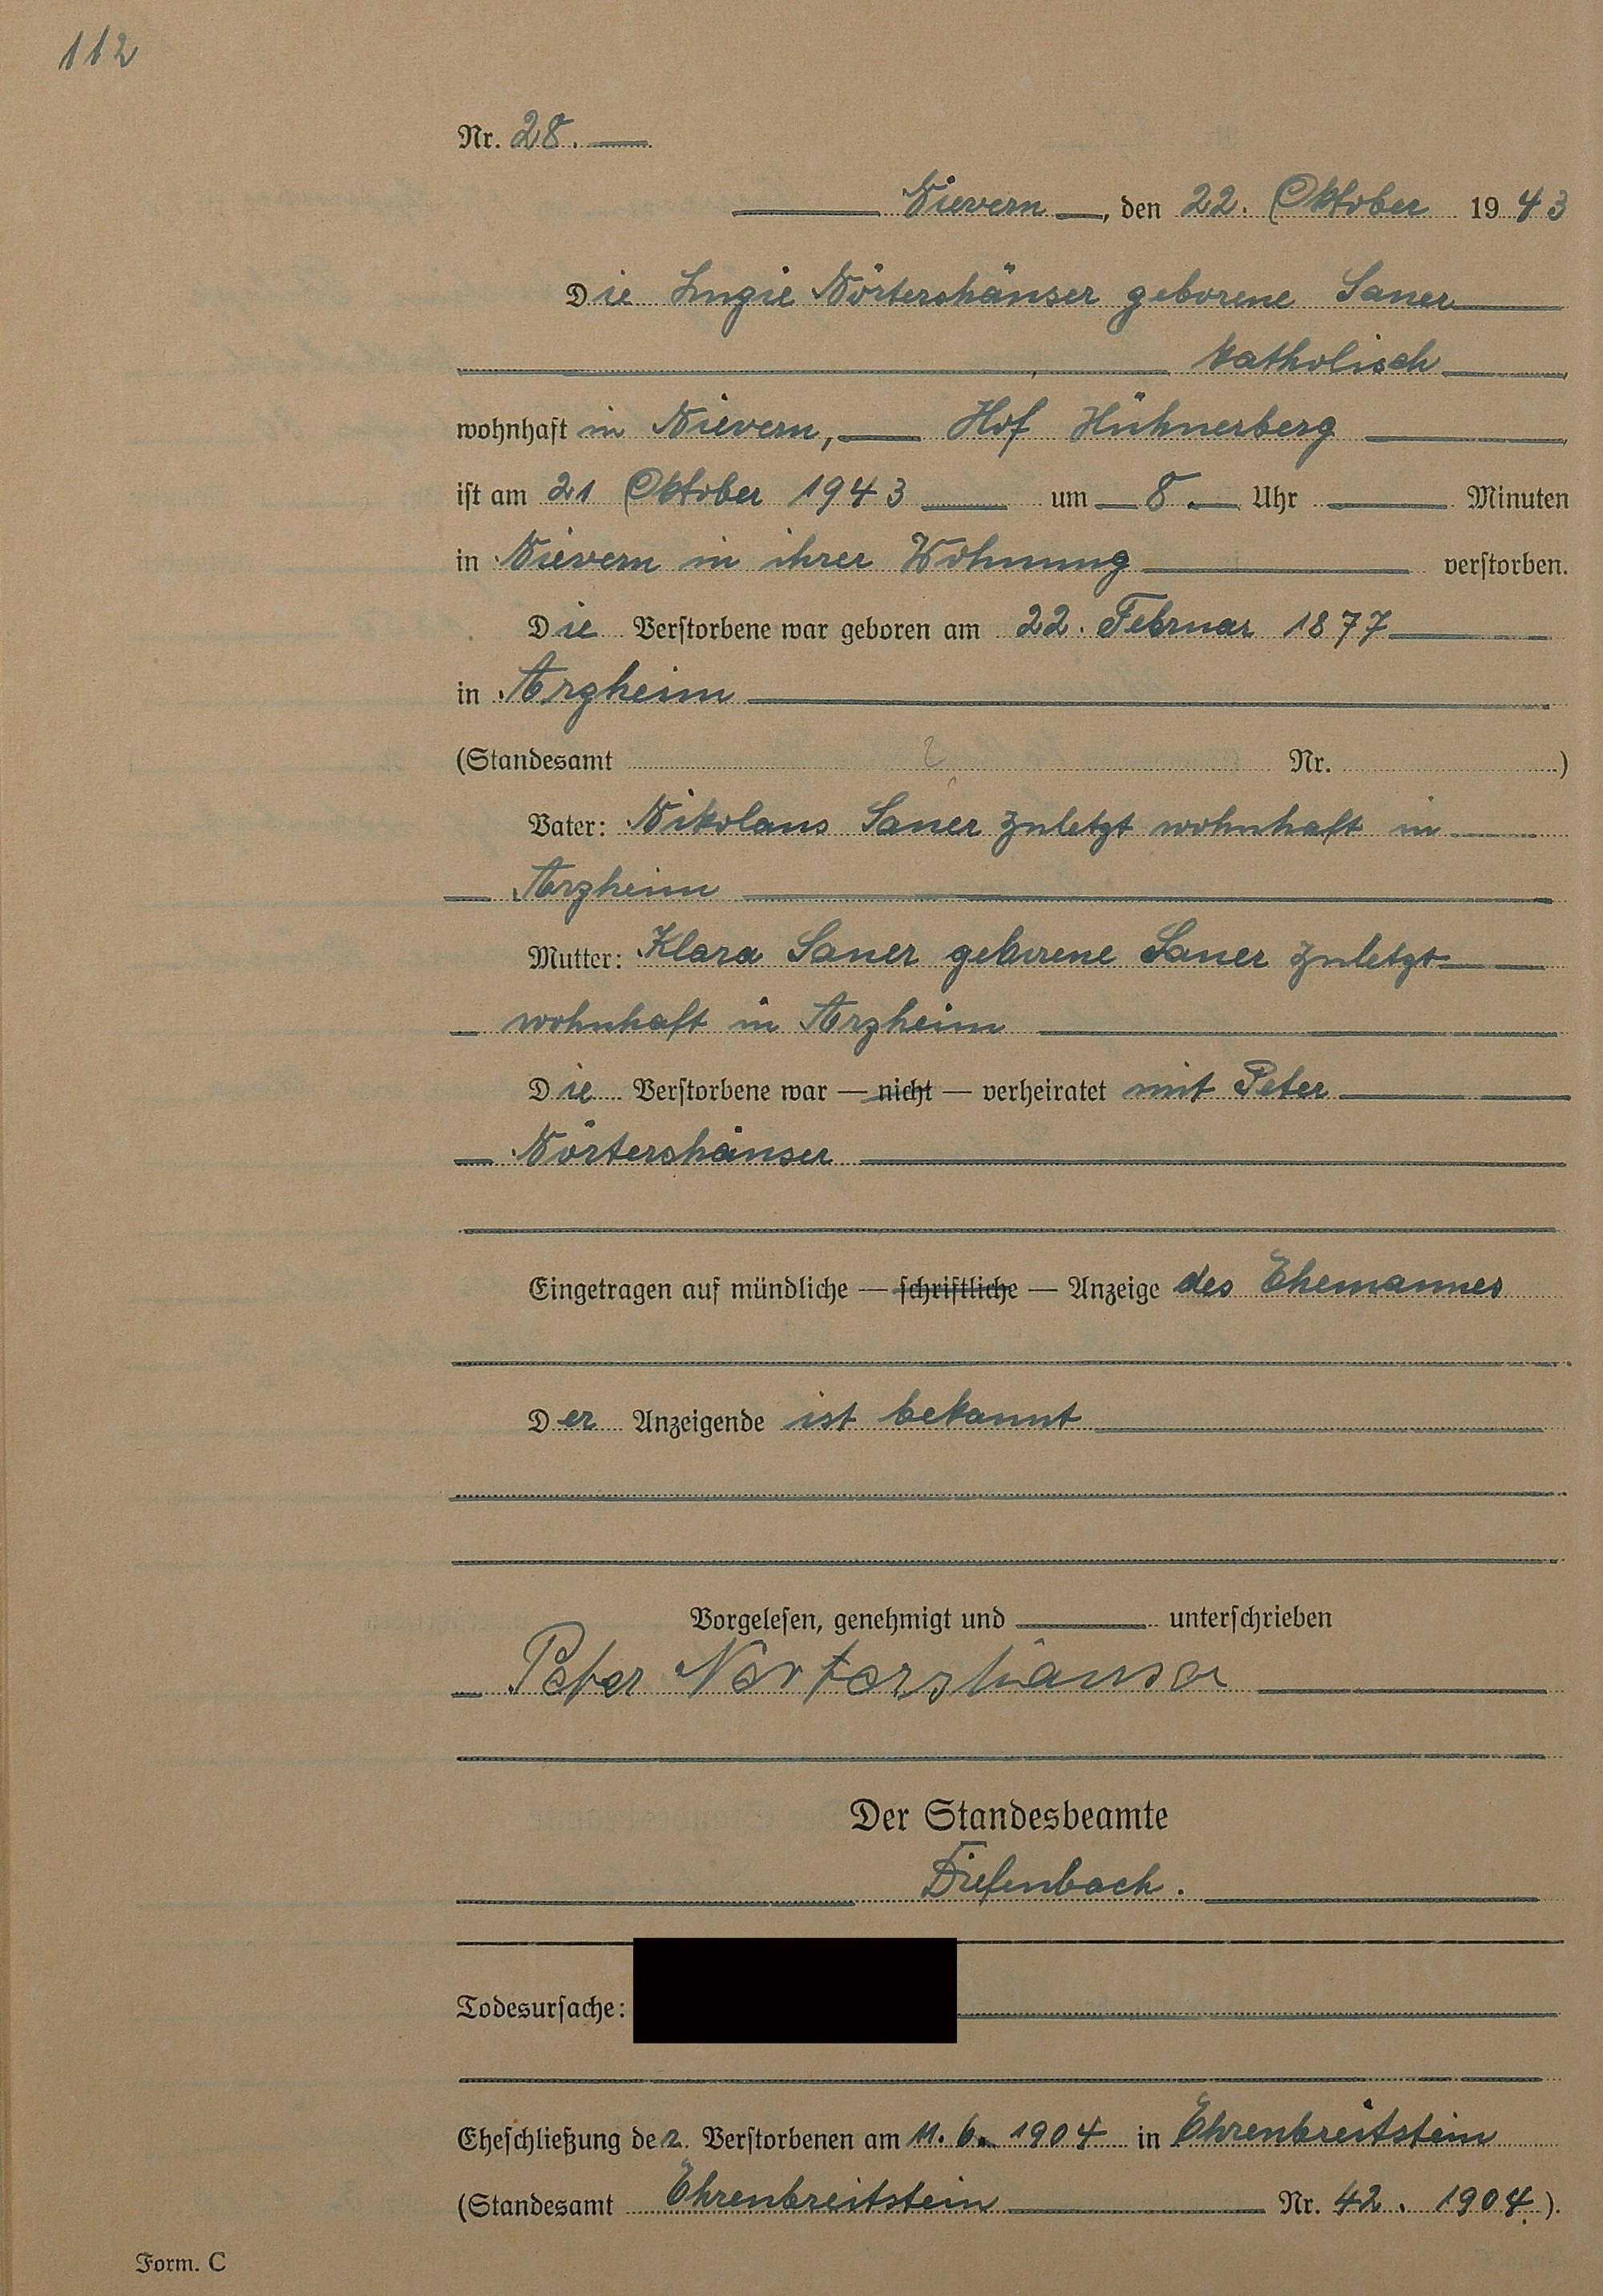 112
Nr. 28.
Nievern, den 22. Oktober 1943
Die Luzie Nörtershäuser geborene Sauer
katholisch
wohnhaft in Nievern, Hof Hühnerberg
ist am 21 Oktober 1943 um 8 Uhr Minuten
in Nievern in ihrer Wohnung verstorben.
Die Verstorbene war geboren am 22. Februar 1877
in Arzheim
(Standesamt ? Nr. )
Vater: Nikolaus Sauer zuletzt wohnhaft in
Arzheim
Mutter: Klara Sauer geborene Sauer zuletzt
wohnhaft in Arzheim
Die Verstorbene war — nicht — verheiratet mit Peter
Nörtershäuser
Eingetragen auf mündliche — schriftliche — Anzeige des Ehemannes
Der Anzeigende ist bekannt
Vorgelesen, genehmigt und unterschrieben
Peter Nörtershäuser
Der Standesbeamte
Diefenbach.
Todesursache:
Eheschließung der Verstorbenen am 11. 6. 1904 in Ehrenbreitstein
(Standesamt Ehrenbreitstein Nr. 42. 1904.).
Form. C